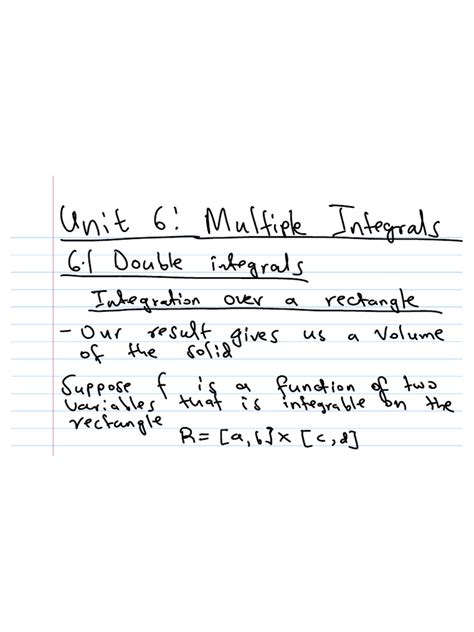 Unit 6: Multiple Integrals
6.1 Double integrals
Integration over a rectangle
- Our result gives us a volume
of the solid
Suppose f is a function of two
variables that is integrable on the
rectangle
R = [a,b] x [c,d]